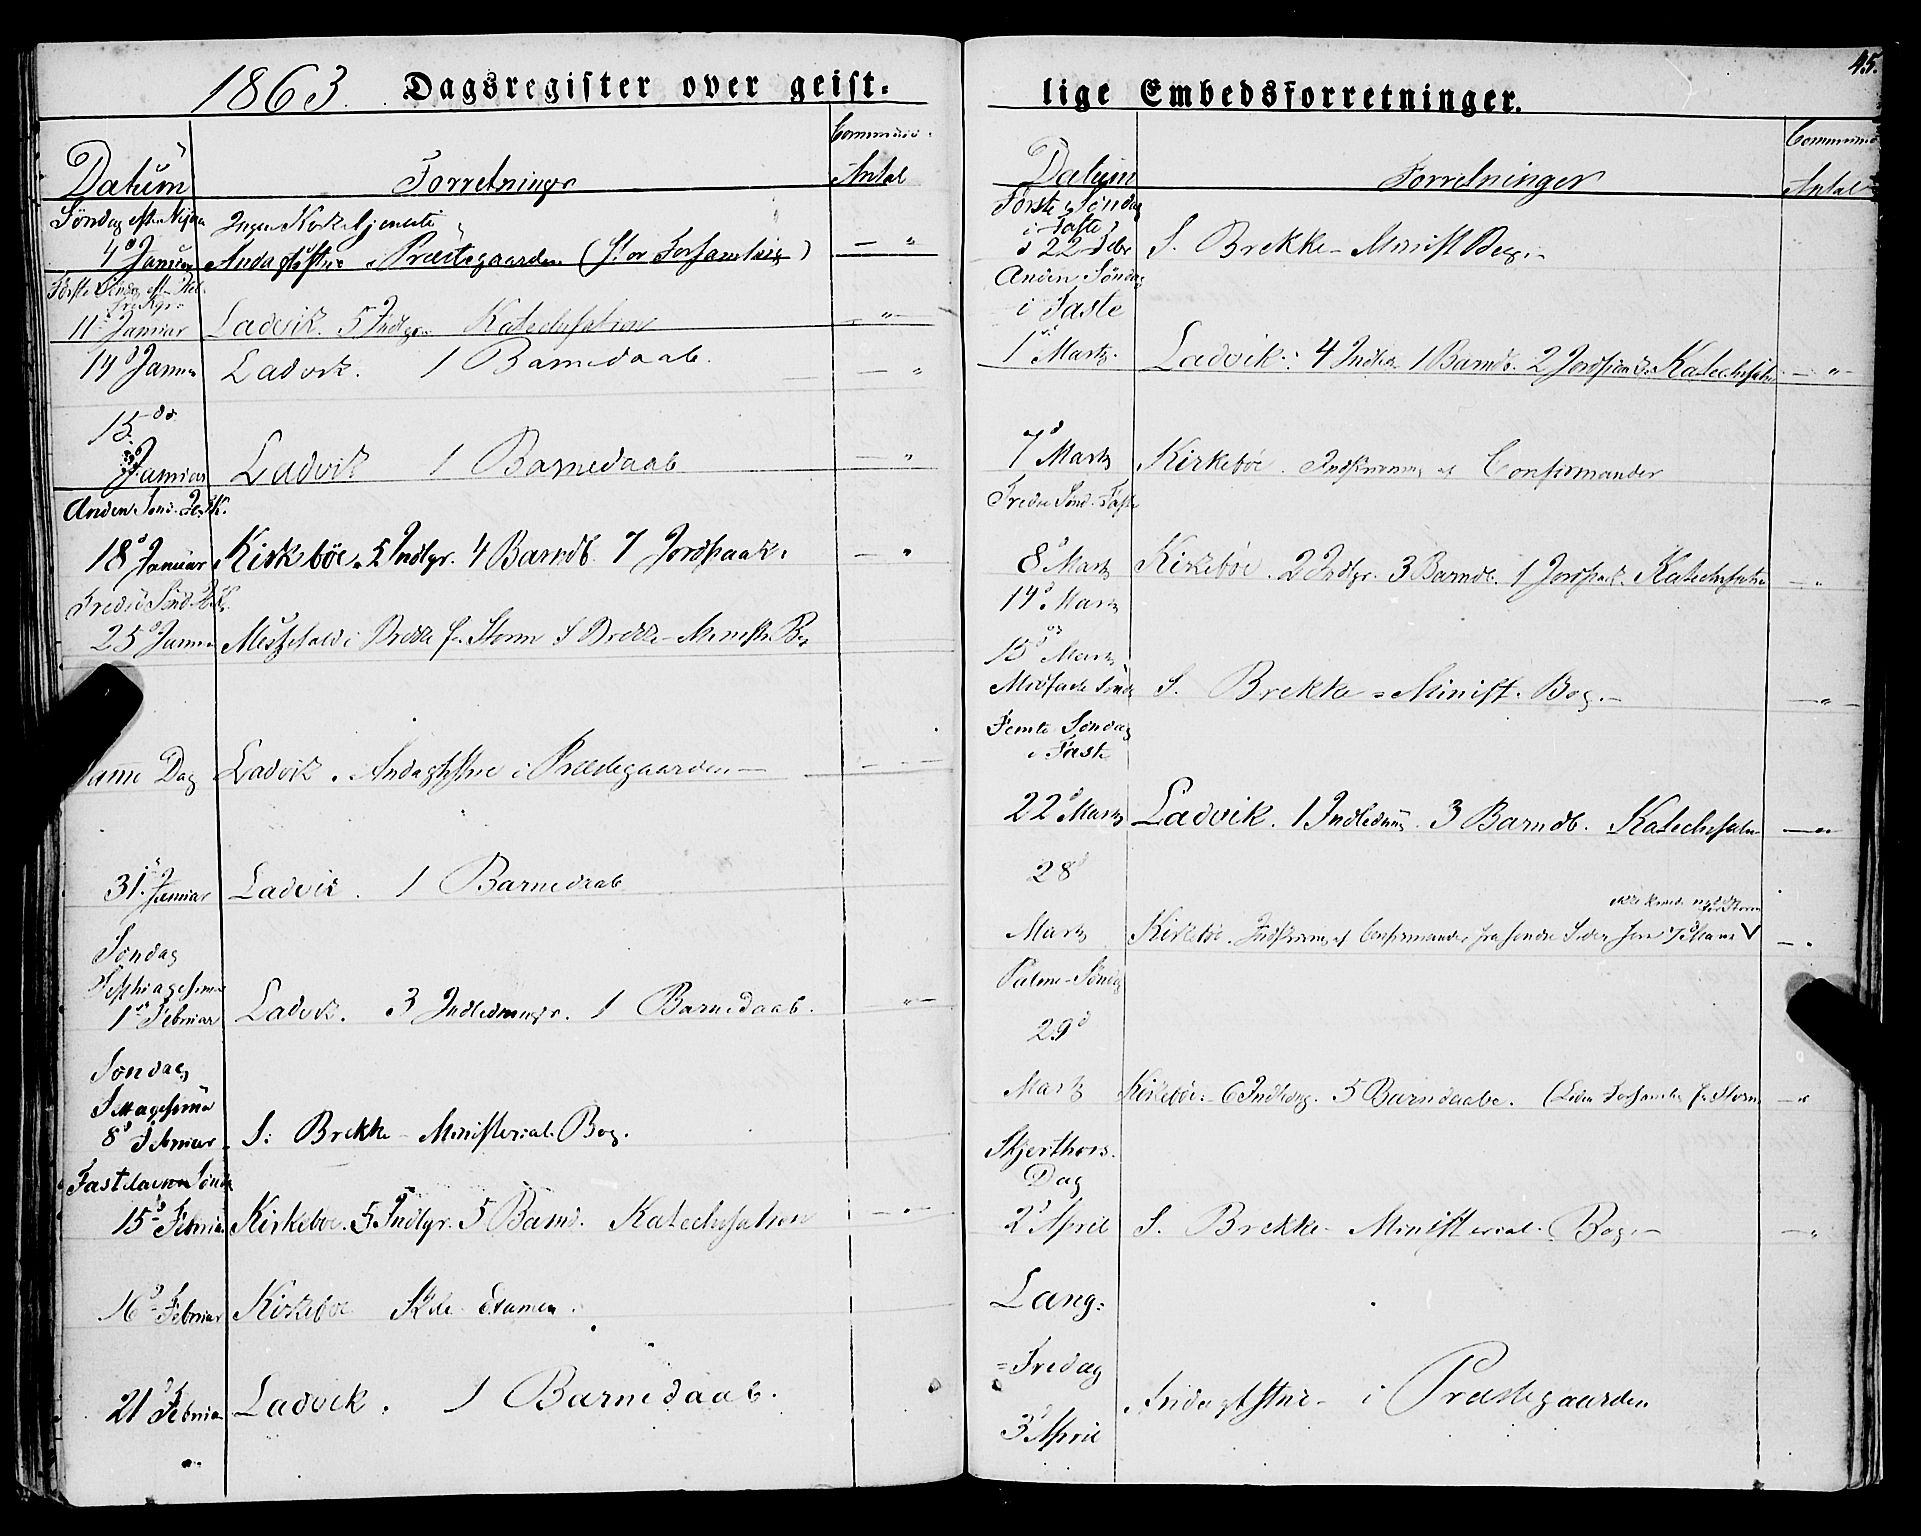 1863. Dagsregister over geist-
Datum Forretninger Communic. Antal
Søndag eft. Nyaar Ingen Kirketjeneste
4d Januar Andagtstime i Præstegaarden (stor Forsamling) — "
Første Sønd. eft. Hel. tre Kgr.
11te Januar Ladvik. 5 Indlgr. Katechisation — " —
14d Januar Ladvik. 1 Barnedaab. — "
15de
Januar Ladvik 1 Barnedaab — "
Anden Sønd. H. 3 K.
18d Januar Kirkebøe. 5 Indlgr. 4 Barndb. 7 Jordpaak. — "
Tredie Sønd. H. 3 K.
25d Januar Messefald i Brekke f. Storm S. Brekke - Minist. Bog
Samme Dag Ladvik. Andagtstime i Præstegaarden —
31te Januar Ladvik. 1 Barnedaab
Søndag
Septuagesima
1ste Februar Ladvik. 3 Indledninger. 1 Barnedaab. — " —
Søndag
Sexagesima
8d Februar S. Brekke - Ministerial. Bog.
Fastelavns Sønd.
15d Februar Kirkebøe. 5 Indlgr. 5 Barnd. Katechisation — " —
16d Februar Kirkebøe Skole-Examen.
21d Februar Ladvik. 1 Barnedaab.
45.
lige Embedsforretninger.
Datum Forretninger Communic. Antal
Første Søndag
i Faste
d 22 Febr S. Brekke - Minist. Bog. -
Anden Søndag
i Faste
1ste Marts. Ladvik. 4 Indledn. 1 Barndb. 2 Jordpaak. Katechisation — " —
7d Marts Kirkebøe. Indskrivning af Confirmander
Tredie Sønd. Faste
8d Marts Kirkebøe. 2 Indlgr. 3 Barndb. 1 Jordpaak. Katechisation — "
14d Marts
og
15d Marts
Midfaste Sønd. S. Brekke - Minist. Bog. — — " —
Femte Søndag
i Faste
22d Marts Ladvik. 1 Indledning. 3 Barndb. Katechisation — "
28d
ikke kunde møde for Storm
Marts Kirkebøe. Indskrivning af Confirmander fra søndre Side, som 7d Marts V — "
Palme-Søndag
29d
Marts Kirkebøe. - 6 Indledng. 5 Barndaabe. (Liden Forsamling f. Storm — "
Skjerthors-
Dag
2d April S. Brekke - Ministerial. Bog. — — "
Lang-
=Fredag
Andagtstime - i Præstegaarden
3d April